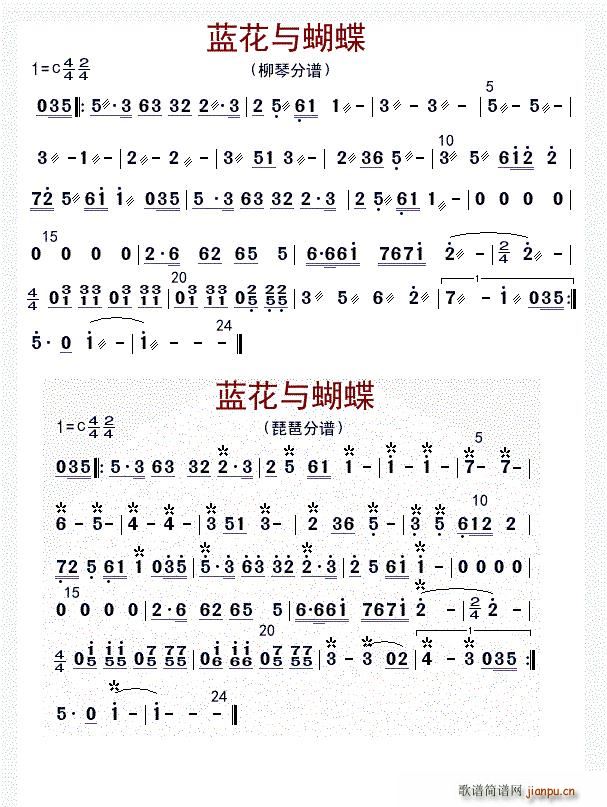 蓝花与蝴蝶
1=C 4/4 2/4 （柳琴分谱）
5
035 ‖: 5 · 3 63 32 2 · 3 | 2 5 61 1 - | 3 - 3 - | 5 - 5 - |
10
3 - 1 - | 2 - 2 - | 3 51 3 - | 2 36 5 - | 3 5 612 2 |
72 5 61 1 035 | 5 · 3 63 32 2 · 3 | 2 5 61 1 - | 0 0 0 0 |
15
0 0 0 0 | 2 · 6 62 65 5 | 6 · 661 7671 2 - | 2/4 2 - |
20 1
4/4 0 3/1 3/1 3/1 0 3/1 3/1 3/1 | 0 3/1 3/1 3/1 0 2/5 2/5 2/5 | 3 5 6 2 | 7 - 1 035 :‖
24
5 · 0 1 - | 1 - - - ‖
蓝花与蝴蝶
1=C 4/4 2/4 （琵琶分谱）
5
035 ‖: 5 · 3 63 32 2 · 3 | 2 5 61 1 - | 1 - 1 - | 7 - 7 - |
10
6 - 5 - | 4 - 4 - | 3 51 3 - | 2 36 5 - | 3 5 612 2 |
72 5 61 1 035 | 5 · 3 63 32 2 · 3 | 2 5 61 1 - | 0 0 0 0 |
15
0 0 0 0 | 2 · 6 62 65 5 | 6 · 661 7671 2 - | 2/4 2 - |
20 1
4/4 0 1/5 1/5 1/5 0 7/5 7/5 7/5 | 0 1/6 1/6 1/6 0 7/5 7/5 7/5 | 3 - 3 02 | 4 - 3 035 :‖
24
5 · 0 1 - | 1 - - - ‖
歌谱简谱网 jianpu.cn